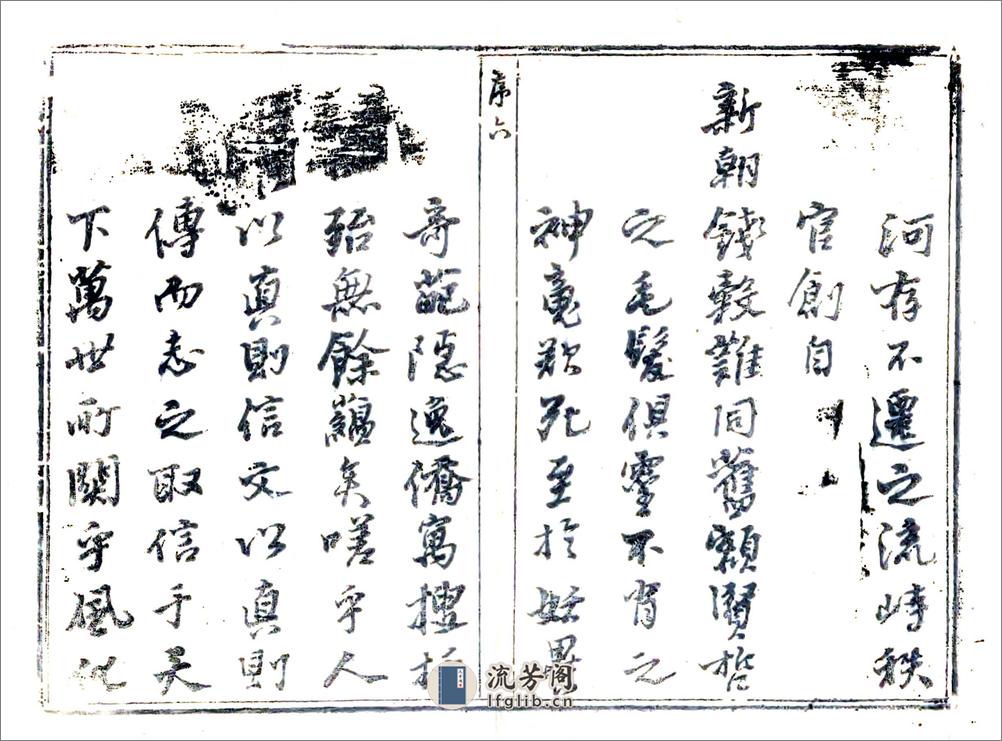 河存不遷之流峙秩
官創自
新朝錢穀難同舊額賢哲
之毛髮俱靈不肖之
神魂欲死至於妖異
序六
奇葩隱逸僑寓搜
殆無餘蘊矣嗟乎人
以真則信文以真則
傳而志之取信于天
下萬世所關乎風化
流芳阁
lfglib.cn